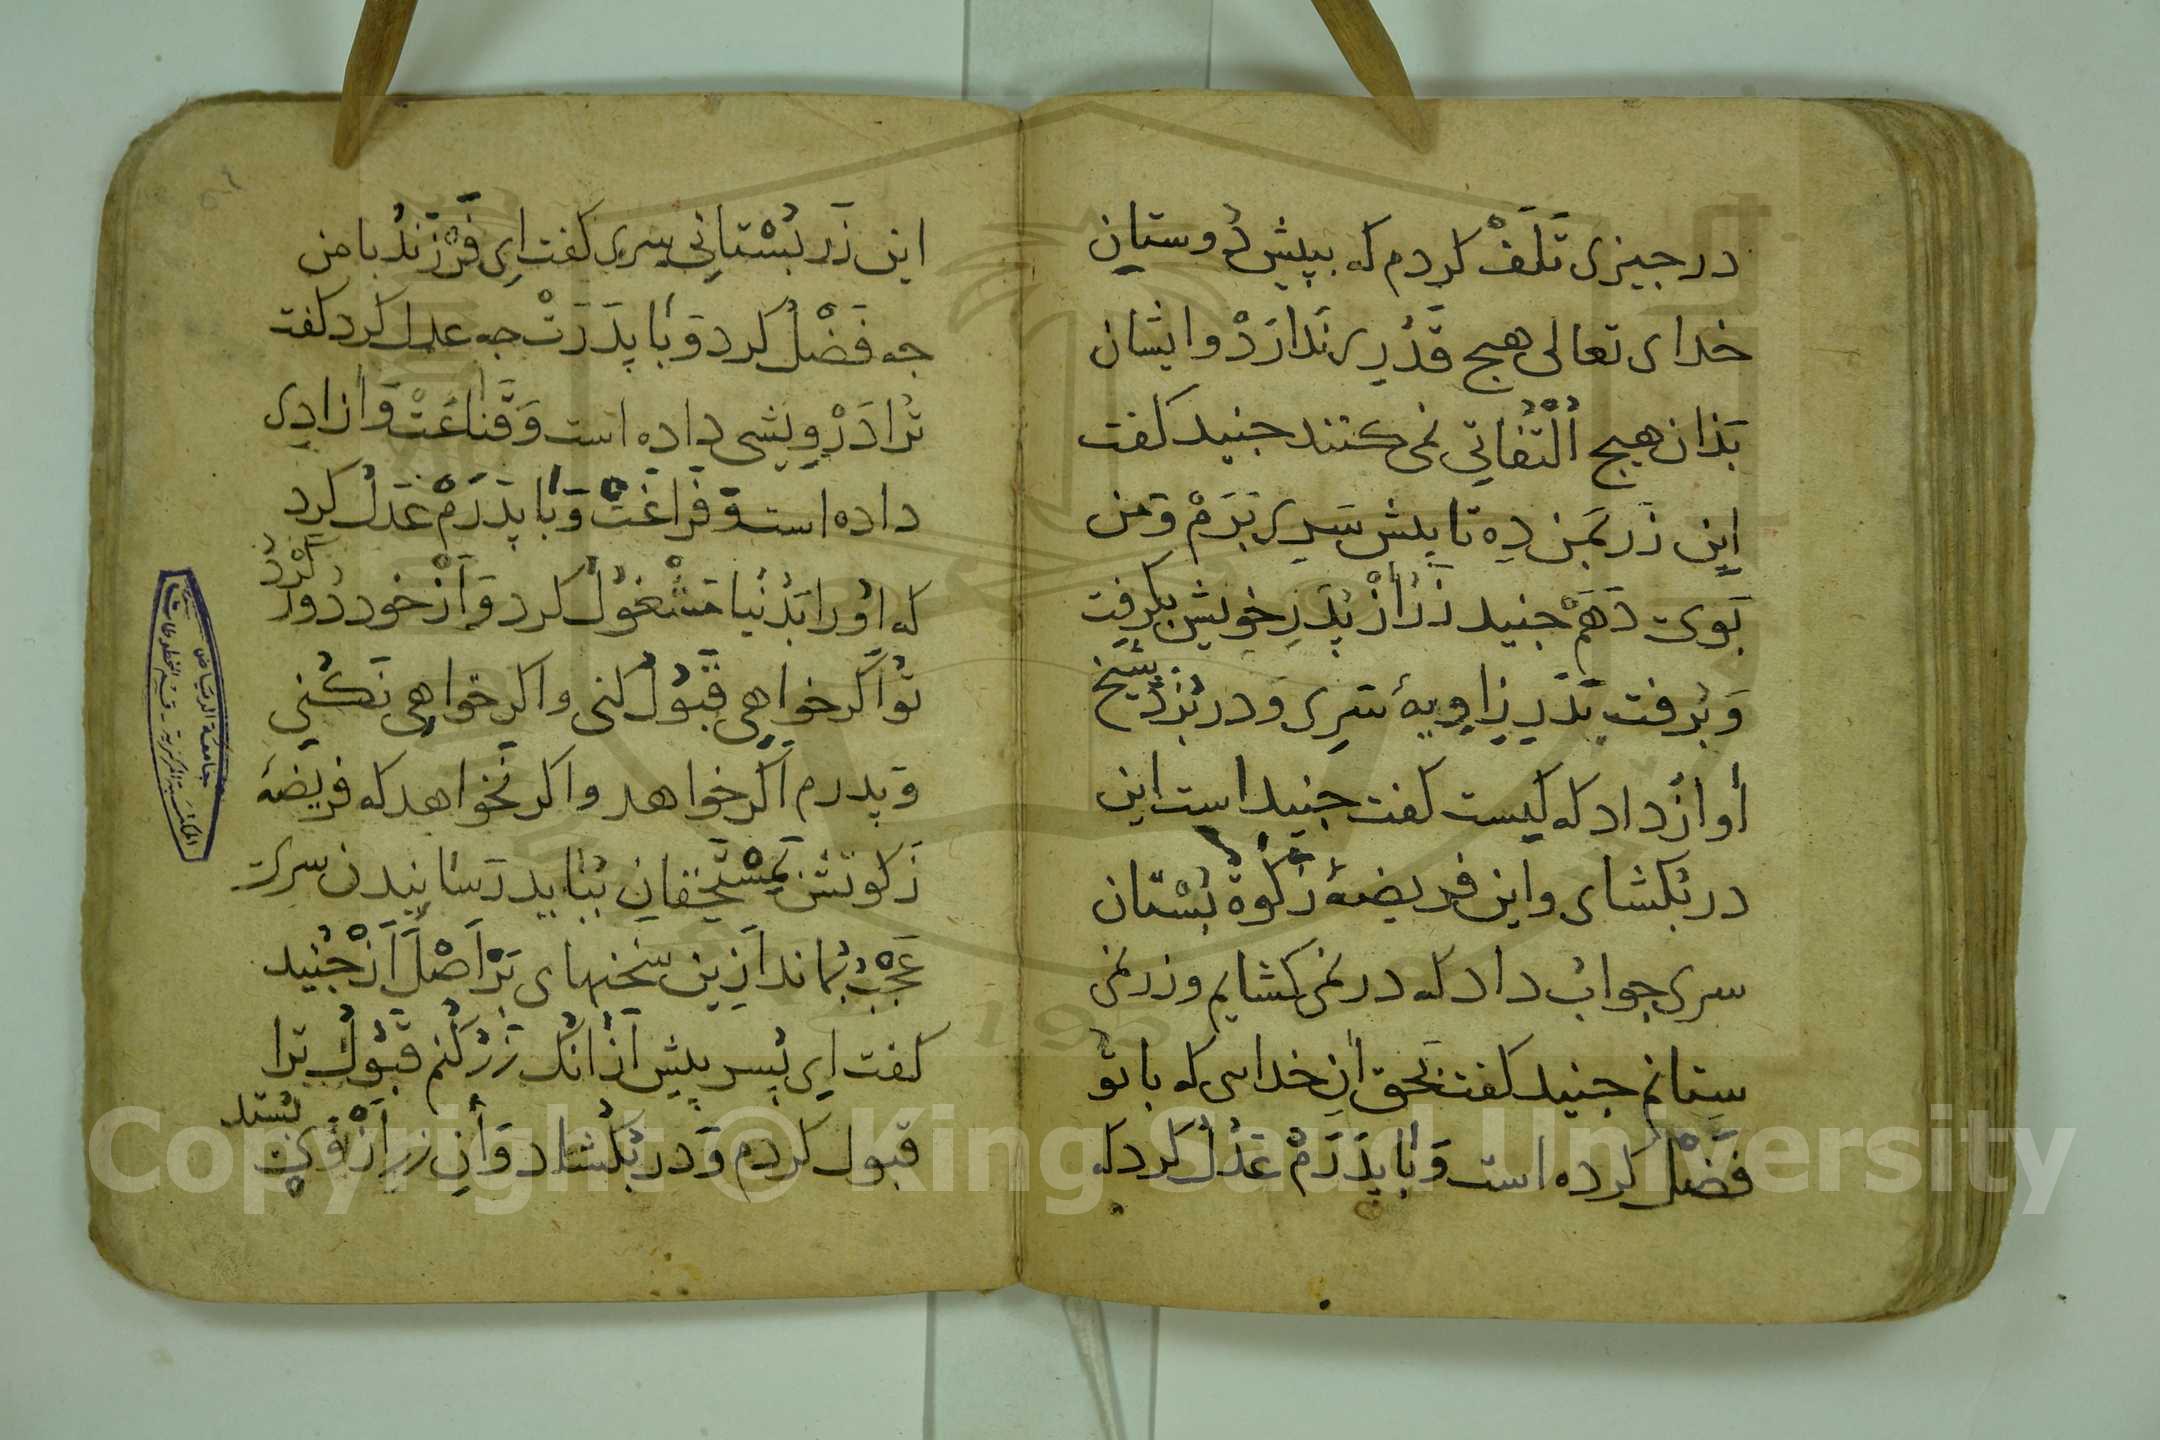 در جیزی تَلَفْ کردم که بپیش دُوستانِ
خدای تعالی هیج قَدْرِی نَدارَدْ وایشان
بَدان هیج اُلْتُفاتِی نمی کنند جنید کفت
اینِ زَر بَمَن دِه تا پیش سَرِی بَرَمْ وَمن
بَوی دَهَمْ جنید زَر اَزْ پِدَرِ خویش بکرِفت
وَبُرفت بَدَرِ زاوِیهٔ سَرِی وَدر بُزَدْ شَیخ
أواز داد که کیست کفت جنید است این
در بُکشای واین فریضهٔ زَکوة بُستان
سری جواب داد که در نمی کشایم وزر نمی
سِتانم جنید کفت بحَق انِ خدایی که با تو
فَضْل کرده است وَبا پِدَرَمْ عَدْل کرد که
این زَر بُسْتانِی سری کفت اِی فَرْزَنْد با من
جه فَضْل کرد وَبا پِدَرَتْ جه عدل کرد کفت
تُرا دَرْوِیشی داده است وَقَناعَتْ وَازادِی
داده است وَفَراغَتْ وَبا پِدَرَمْ عَدْل کرد
که اوُرا بَدُنیا مَشْغُول کرد وَاَزْ خود دُورْ کَرْدْ
تُو اَکر خواهِی قَبُول کنی واکر خواهِی نَکُنی
وَپدرم اَکر خواهد واکر نَخواهد که فریضهٔ
زَکوتش بمُسْتَحِقانِ ببَاید رَسانیدن سری
عَجْب بُماند اَزِین سَخنهای بَرْ اَصْل اَزْ جُنید
کفت اِی پُسر پیش اَزْ انک زَرْ کُنم قَبُول ترا
قبول کردم وَدر بُکشاد وَانِ زر اَزْ وَی بُستد
جامعة الرياض
المكتبة المركزية - قسم المخطوطات
Copyright © King Saud University
195